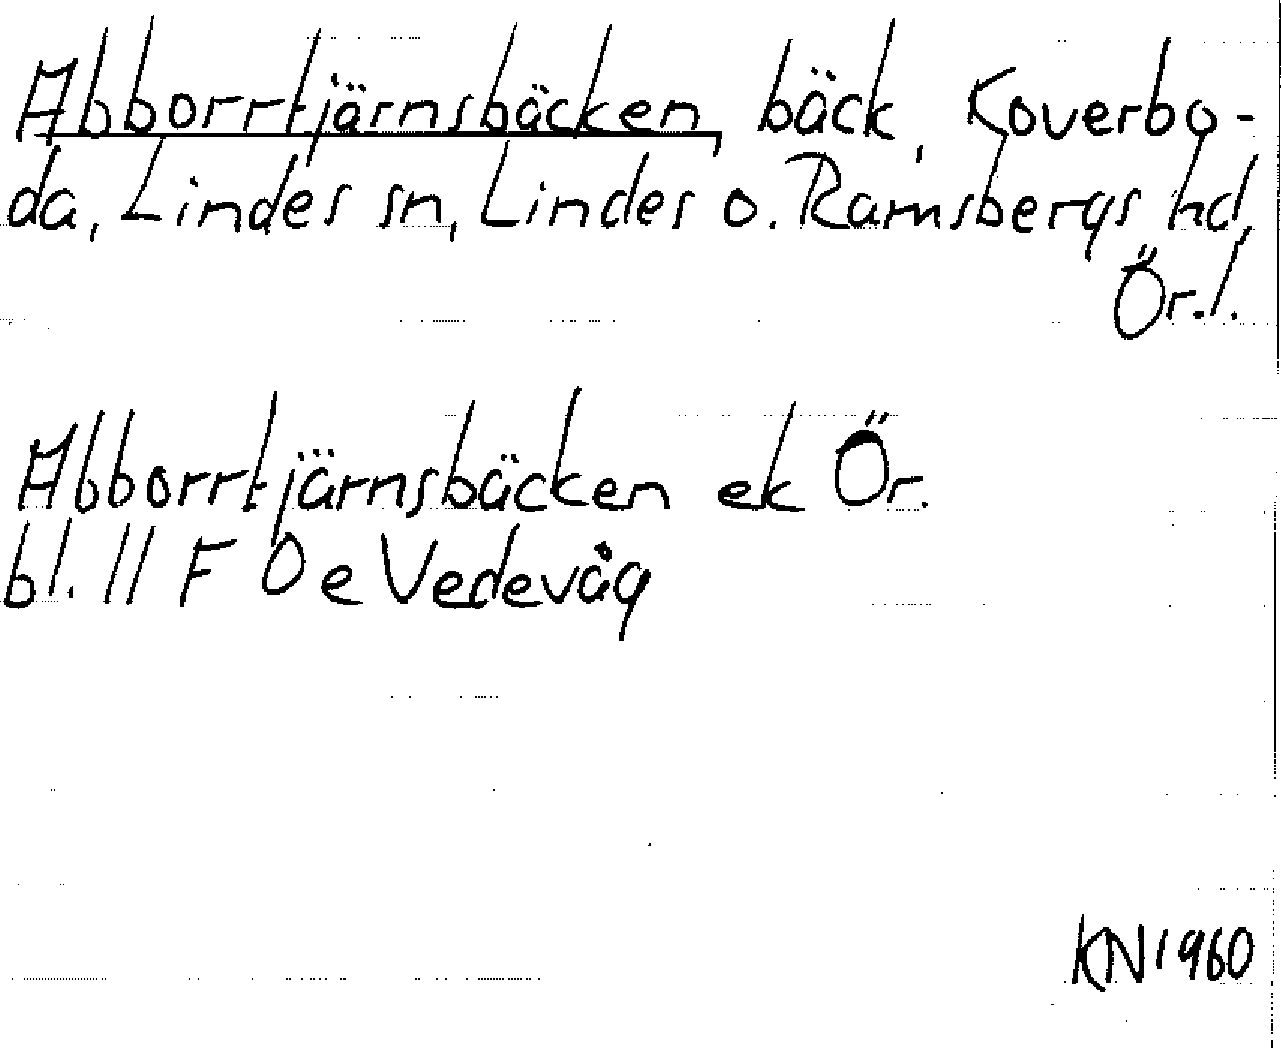 Abborrtjärnsbäcken, bäck, Koverbo-
da, Lindes sn, Lindes o. Ramsbergs hd,
Ör.l.
Abborrtjärnsbäcken ek Ör.
bl. 11 F 0 e Vedevåg
KN 1960